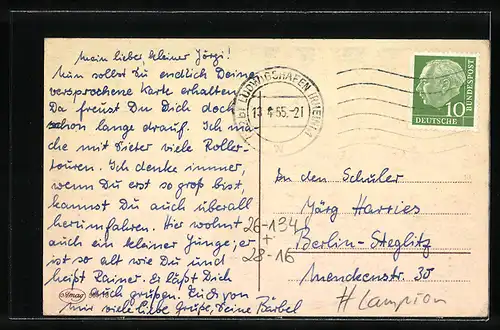 Mein lieber, kleiner Jörgi!
Nun sollst Du endlich Deine
versprochene Karte erhalten.
Da freust Du Dich doch
schon lange drauf. Ich ma-
che mit Dieter viele Roller-
touren. Ich denke immer,
wenn Du erst so groß bist,
kannst Du auch überall
herumfahren. Hier wohnt
auch ein kleiner Junge, er
ist so alt wie Du und
heißt Rainer. Er läßt Dich
auch grüßen. Euch von
mir viele liebe Grüße, Deine Bärbel
LUDWIGSHAFEN (RHEIN) 1
13.4.55.-21
10
DEUTSCHE
BUNDESPOST
An den Schüler
Jörg Harries
Berlin-Steglitz
Menckenstr. 30
26-134
+
28-16
# Lampion